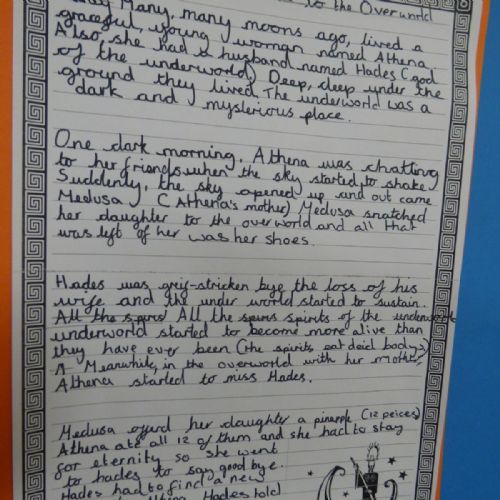 to the Overworld
Many, many moons ago, lived a
graceful, young woman named Athena
Also she had a husband named Hades (god
of the underworld) Deep, deep under the
ground they lived. The underworld was a
dark and mysterious place.
One dark morning, Athena was chatting
to her friends when the sky started to shake
Suddenly, the sky opened up and out came
Medusa (Athena's mother) Medusa snatched
her daughter to the overworld and all that
was left of her was her shoes.
Hades was greif-stricken bye the loss of his
wife and the under world started to sustain.
All the spirs All the spirits of the underworld
underworld started to become more alive than
they have ever been (the spirits eat deid bodys)
Meanwhile, in the overworld with her mother,
Athena started to miss Hades.
Medusa oferd her daughter a pineaple (12 peices)
Athena ate all 12 of them and she had to stay
for eternity so she went
to hades to say good bye.
Hades had to find a new
Hades told